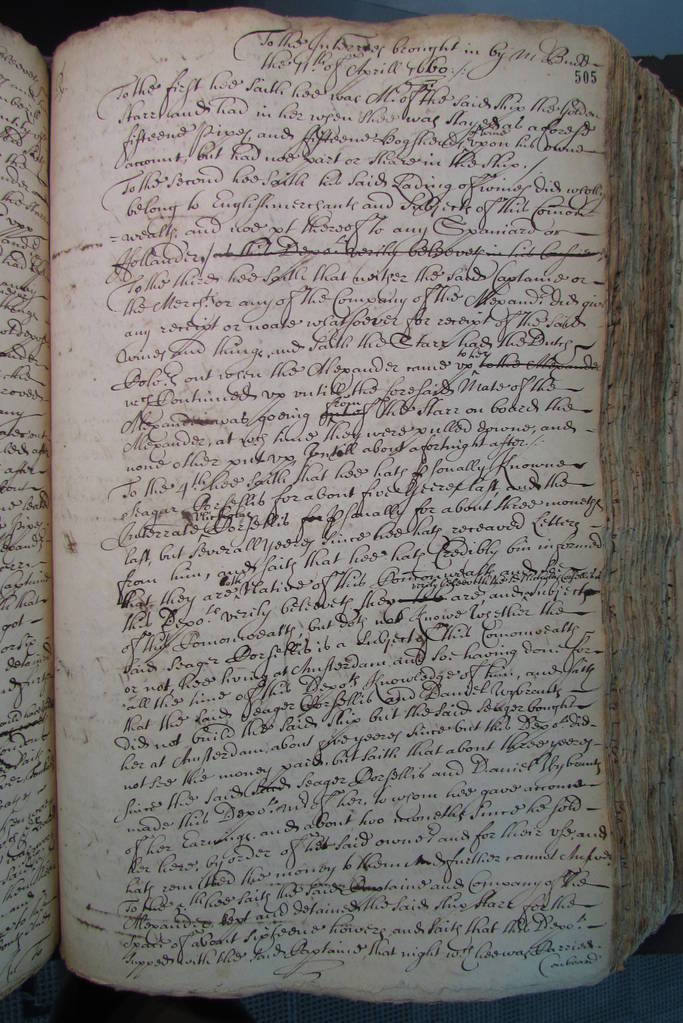 To the Interries brought in by Mr Budd
the 11th of Aprill 1660:/:
505
To the first hee saith hee was Mr of the said ship the Golden
Starr and had in her when shee was stayed as aforesd
fifteene Pipes and fifteene Hogsheads of wine upon his owne
account, but had noe part or share in the ship./
To the second hee saith his said Lading of wines did wholly
belong to English merchants and Subjects of this Comon
wealth, and noe pt thereof to any Spaniard or
Hollander/ as this Depot verily beleeves in his Conscience
To the third hee saith that neither the said Captaine or
the Merchts or any of the Company of the Alexandr did give
any receipt or noate whatsoever for receipt of the said
wines and things, and saith the Starr had the Dutch
Colors out when the Alexander came up to her to the Alexander
wch Continued up untill the foresaid Mate of the
Alexander was goeing from out of the Starr on board the
Alexander, at wch time they were pulled downe, and
none other put up untill about a fortnight after./:
To the 4th hee saith that hee hath psonally Knowne
Seagar Corsellis for about five yeeres last, and the
Interrate Nicholas Corsellis psonally for about three moneths
last, but severall yeeres since hee hath receaved Letters
from him, and saith that hee hath Credibly bin informed
that they are both Natives of this Comonwealth and
this Depot verily beleeveth they are and Subjects
of this Comonwealth, but doth not Knowe whether the
said Seagar Corsellis is a Subject of this Comonwealth
or not, hee liveing at Amsterdam, and soe having done for
all the time of this Depots Knowledge of him, and saith
that the said Seagar Corsellis and Daniel Wybrants
did not build the said ship but the said Seagar bought
her at Amsterdam about five yeeres since but this Depot did
not see the money paid, but saith that about three yeeres
since the said Seagar Corsellis and Daniel Wybrants
made this Depot Mr of her, to whom hee gave accompt
of her Earnings, and about two moneths since he sold
her here, by order of his said owners and for their use and
hath remitted the money to them And further cannot Answer
To the 5th hee saith the said Captaine and Company of the
Alexander kept and detained the said ship Starr for the
space of about sixteene howers, and saith that this Depot
supped with the said Captaine that night wch hee was Carried